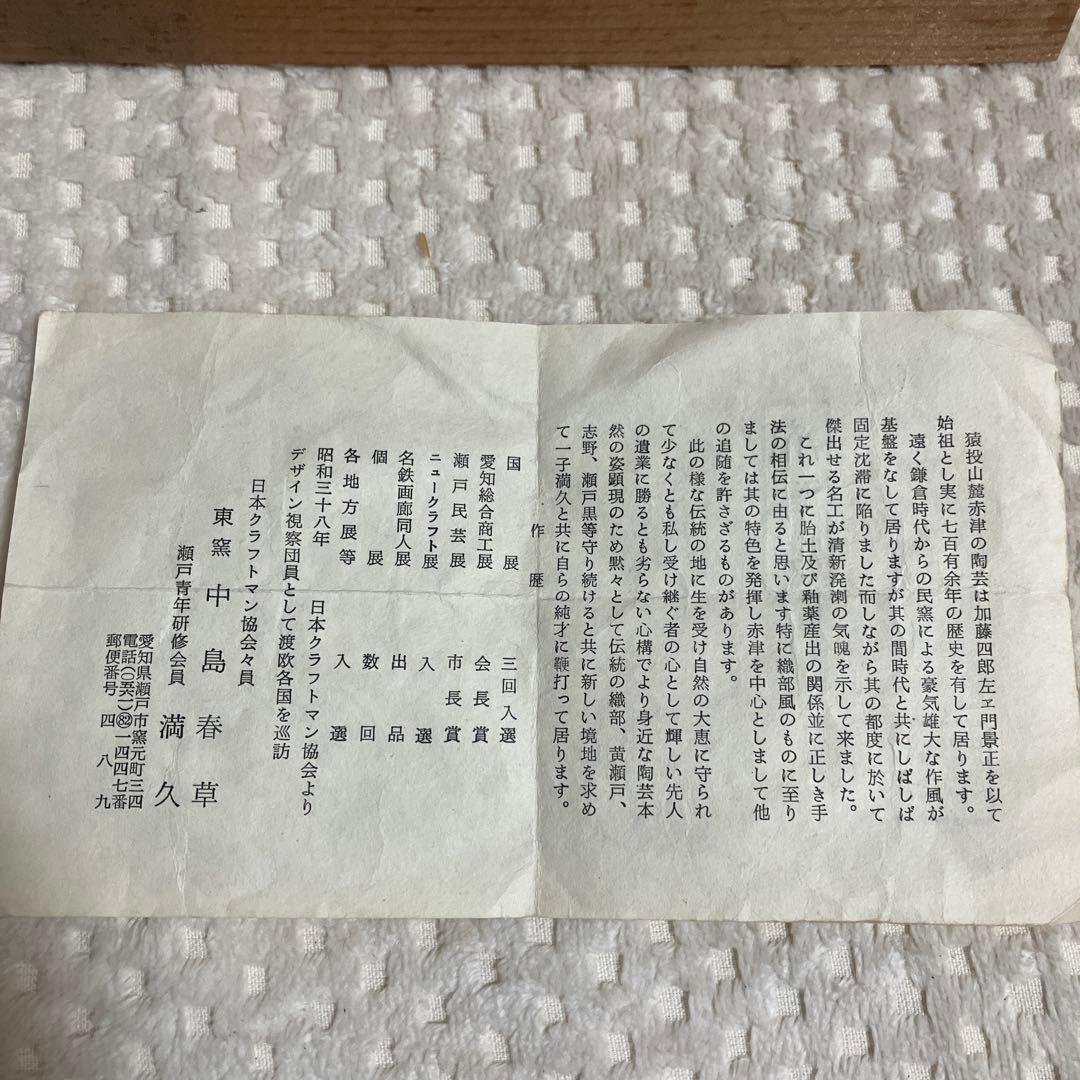 猿投山麓赤津の陶芸は加藤四郎左ヱ門景正を以て
始祖とし実に七百有余年の歴史を有して居ります。
遠く鎌倉時代からの民窯による豪気雄大な作風が
基盤をなして居りますが其の間時代と共にしばしば
固定沈滞に陥りました而しながら其の都度に於いて
傑出せる名工が清新溌溂の気魄を示して来ました。
これ一つに胎土及び釉薬産出の関係並に正しき手
法の相伝に由ると思います特に織部風のものに至り
ましては其の特色を発揮し赤津を中心としまして他
の追随を許さざるものがあります。
此の様な伝統の地に生を受け自然の大恵に守られ
て少なくとも私し受け継ぐ者の心として輝しい先人
の遺業に勝るとも劣らない心構でより身近な陶芸本
然の姿顕現のため黙々として伝統の織部、黄瀬戸、
志野、瀬戸黒等守り続けると共に新しい境地を求め
て一子満久と共に自らの純才に鞭打って居ります。
作歴
国展 三回入選
愛知総合商工展 会長賞
瀬戸民芸展 市長賞
ニュークラフト展 入選
名鉄画廊同人展 出品
個展 数回
各地方展等 入選
昭和三十八年 日本クラフトマン協会より
デザイン視察団員として渡欧各国を巡訪
日本クラフトマン協会々員
東窯 中島春草
瀬戸青年研修会員
満久
愛知県瀬戸市窯元町三四
電話(〇五六一)82一四四七番
郵便番号 四八九